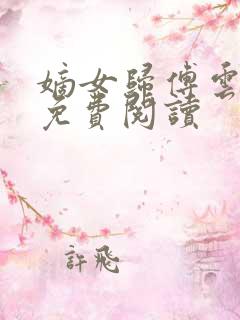 嫡女歸傅雲
免費閱讀
許飛